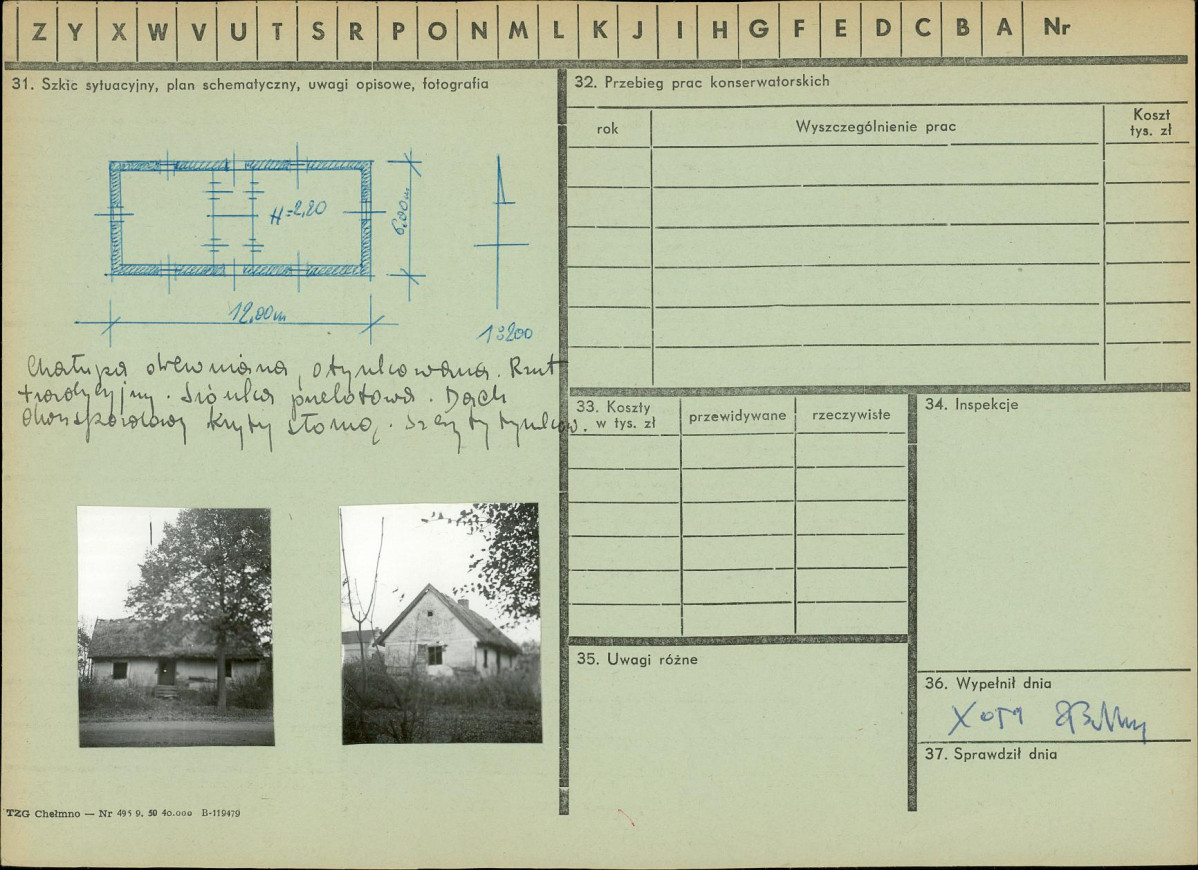 Z Y X W V U T S R P O N M L K J I H G F E D C B A Nr
31. Szkic sytuacyjny, plan schematyczny, uwagi opisowe, fotografia
H=2,20
6.00m
12,00m
Chałupa drewniana, otynkowana. Rzut
tradycyjny. Sionka przelotowa. Dach
dwuspadowy kryty słomą. Szczyty tynkow.
TZG Chełmno — Nr 495 9. 50 40.000 B-119479
32. Przebieg prac konserwatorskich
rok
Wyszczególnienie prac
Koszt
tys. zł
33. Koszty
w tys. zł
przewidywane
rzeczywiste
34. Inspekcje
35. Uwagi różne
36. Wypełnił dnia
37. Sprawdził dnia